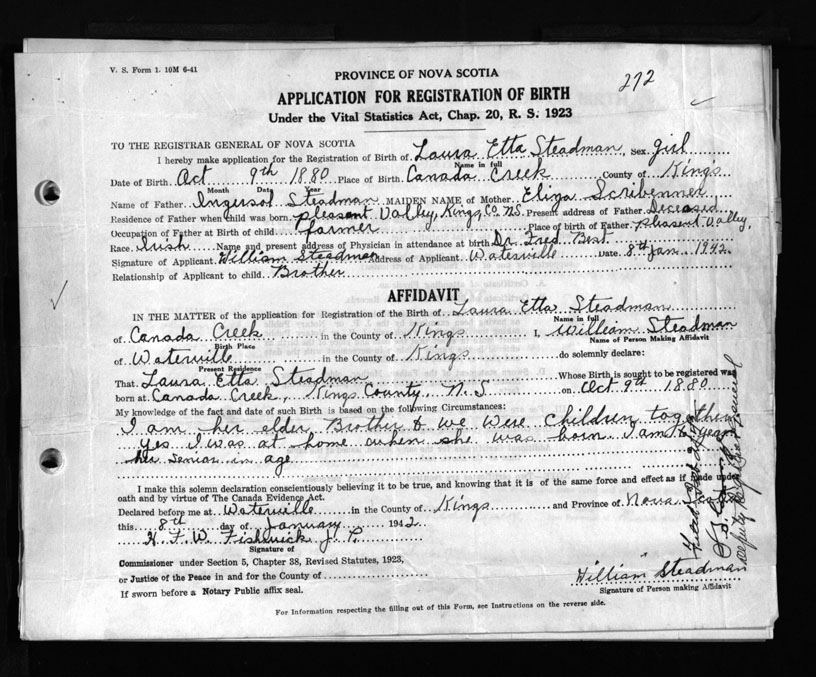 V. S. Form 1. 10M 6-41
272
PROVINCE OF NOVA SCOTIA
APPLICATION FOR REGISTRATION OF BIRTH
Under the Vital Statistics Act, Chap. 20, R. S. 1923
TO THE REGISTRAR GENERAL OF NOVA SCOTIA
I hereby make application for the Registration of Birth of Laura Etta Steadman, Sex girl
Name in full
Date of Birth Oct 9th 1880 Place of Birth Canada Creek County of Kings
Month Date Year
Name of Father Ingersol Steadman MAIDEN NAME of Mother Eliza Scribenner
Residence of Father when child was born pleasent Valley, Kings Co. N.S. Present address of Father Deceased
Occupation of Father at Birth of child farmer Place of birth of Father Pleasent Valley,
Race Irish Name and present address of Physician in attendance at birth Dr Fred Best
Signature of Applicant William Steadman Address of Applicant Waterville Date 8th Jan. 1942.
Relationship of Applicant to child Brother
AFFIDAVIT
IN THE MATTER of the application for Registration of the Birth of Laura Etta Steadman
Name in full
of Canada Creek in the County of Kings I, William Steadman
Birth Place Name of Person Making Affidavit
of Waterville in the County of Kings do solemnly declare:
Present Residence
That Laura Etta Steadman Whose Birth is sought to be registered was
born at Canada Creek, Kings County, N. S on Oct 9th 1880
My knowledge of the fact and date of such Birth is based on the following Circumstances:
I am her elder Brother & we were children together
yes I was at home when she was born. I am years
her senior in age
I make this solemn declaration conscientiously believing it to be true, and knowing that it is of the same force and effect as if made under
oath and by virtue of The Canada Evidence Act.
Declared before me at Waterville in the County of Kings and Province of Nova Scotia
this 8th day of January 1942.
H. F. W. Fishwick J. P.
Signature of
Commissioner under Section 5, Chapter 38, Revised Statutes, 1923,
or Justice of the Peace in and for the County of
If sworn before a Notary Public affix seal.
William Steadman
Signature of Person making Affidavit
For Information respecting the filling out of this Form, see Instructions on the reverse side.
Deputy Registrar General